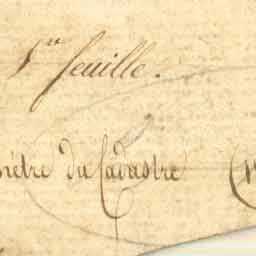 1re feuille.
mètre du Cadastre (